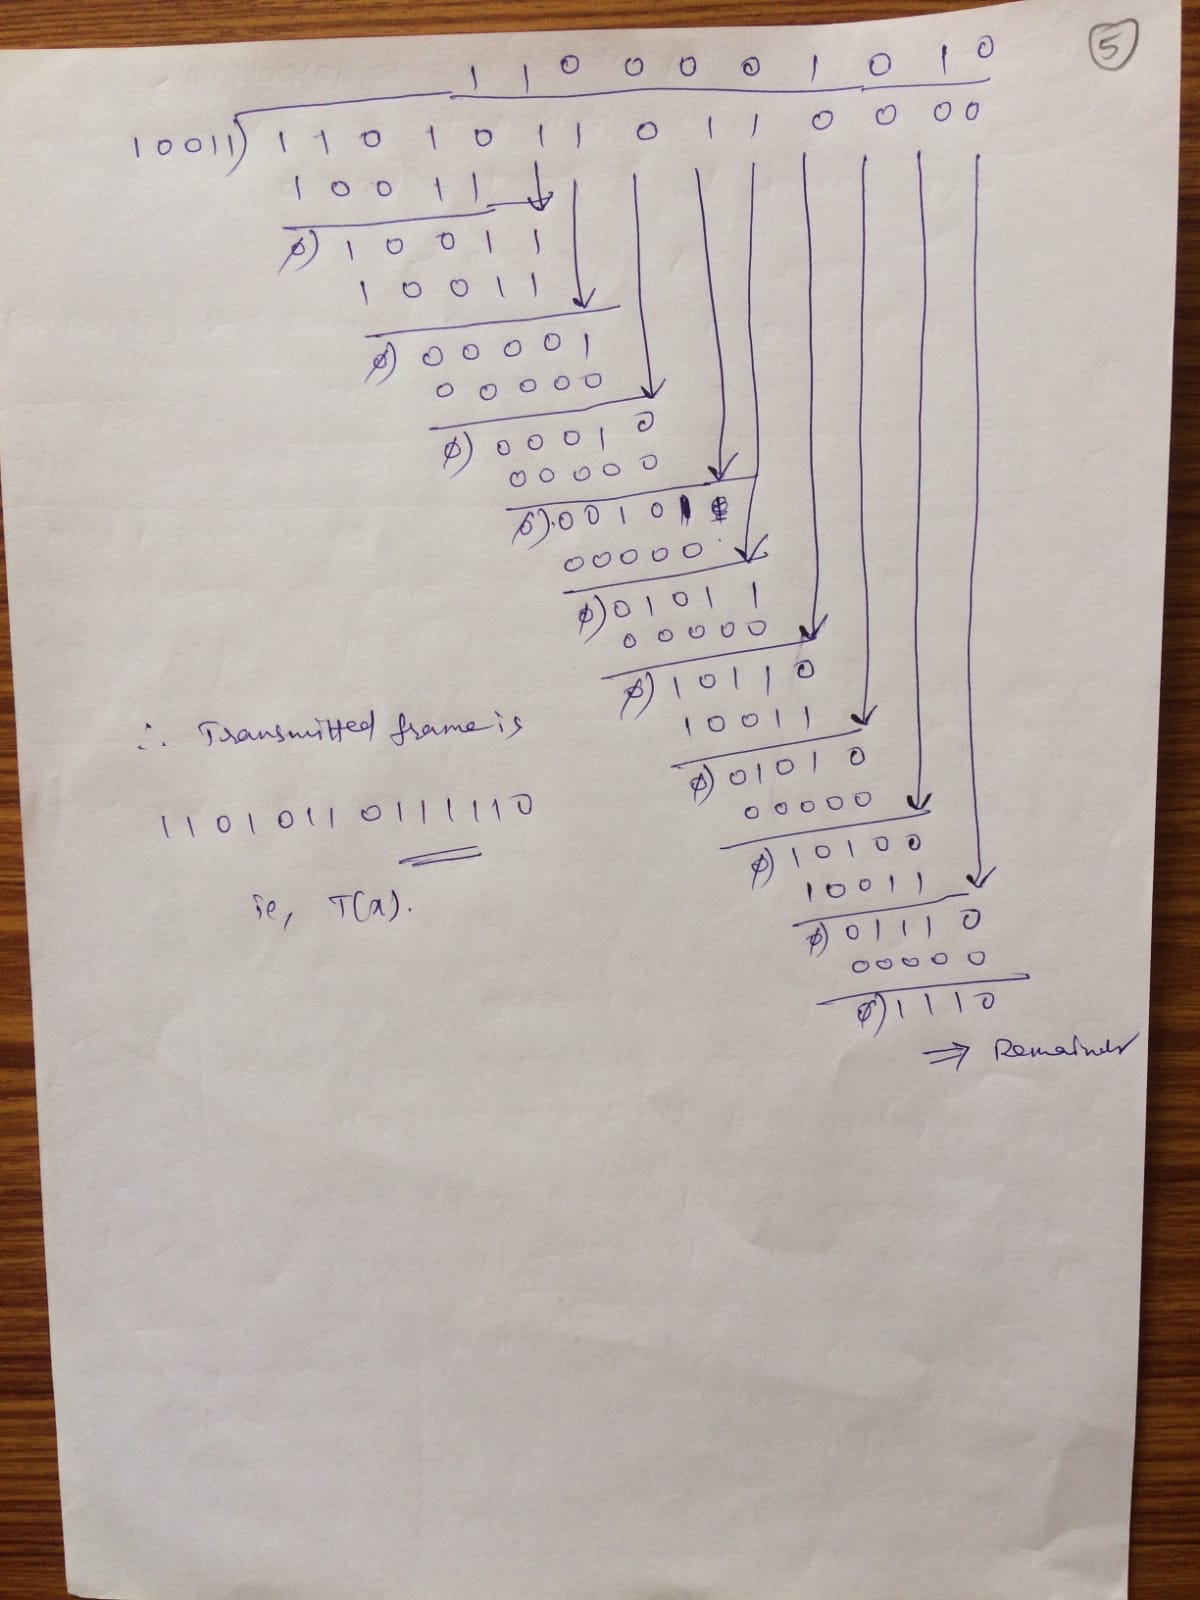 5
1 1 0 0 0 0 1 0 1 0
10011) 1 1 0 1 0 1 1 0 1 1 0 0 0 0
1 0 0 1 1
0) 1 0 0 1 1
1 0 0 1 1
0) 0 0 0 0 1
0 0 0 0 0
0) 0 0 0 1 0
0 0 0 0 0
0) 0 0 1 0 1
0 0 0 0 0
0) 0 1 0 1 1
0 0 0 0 0
0) 1 0 1 1 0
1 0 0 1 1
0) 0 1 0 1 0
0 0 0 0 0
0) 1 0 1 0 0
1 0 0 1 1
0) 0 1 1 1 0
0 0 0 0 0
0) 1 1 1 0
⇒ Remainder
∴ Transmitted frame is
1 1 0 1 0 1 1 0 1 1 1 1 1 0
ie, T(x).